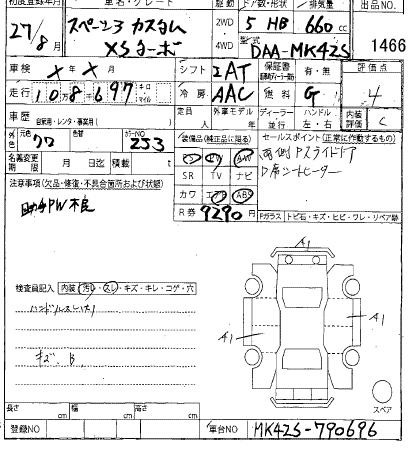 初度登録年月 車名・グレード 駆動 ドア数・形状 排気量 出品NO.
27/8月 スペーシア カスタム XSターボ 2WD 4WD 5 HB 660cc 1466
型式 DAA-MK42S
車検 X年X月 シフト IAT 保証書 有・無 評価点
走行 108697 キロ マイル 冷房 AAC 燃料 G 4
車歴 自家用・レンタ・事業用 定員 人 外車モデル 年 ディーラー 並行 ハンドル 左・右 内装評価 C
外色 元色 クロ カラーNO ZJ3 装備品(純正品に限る) セールスポイント(正常に作動するもの)
名義変更期限 月 日迄 積載 t SR TV ナビ 両側Pスライドドア
AW D席シートヒーター
注意事項(欠品・修復・不具合箇所および状態) カワ エアB ABS
助手PW不良 R券 9290円 Pガラス トビ石・キズ・ヒビ・ワレ・リペア跡
検査員記入 内装 汚れ・スレ・キズ・キレ・コゲ・穴
ハンドルスレ有り
キズ、B
A1
A1
A1
スペア
長さ cm 幅 cm 高さ cm
登録NO 車台NO MK42S-790696